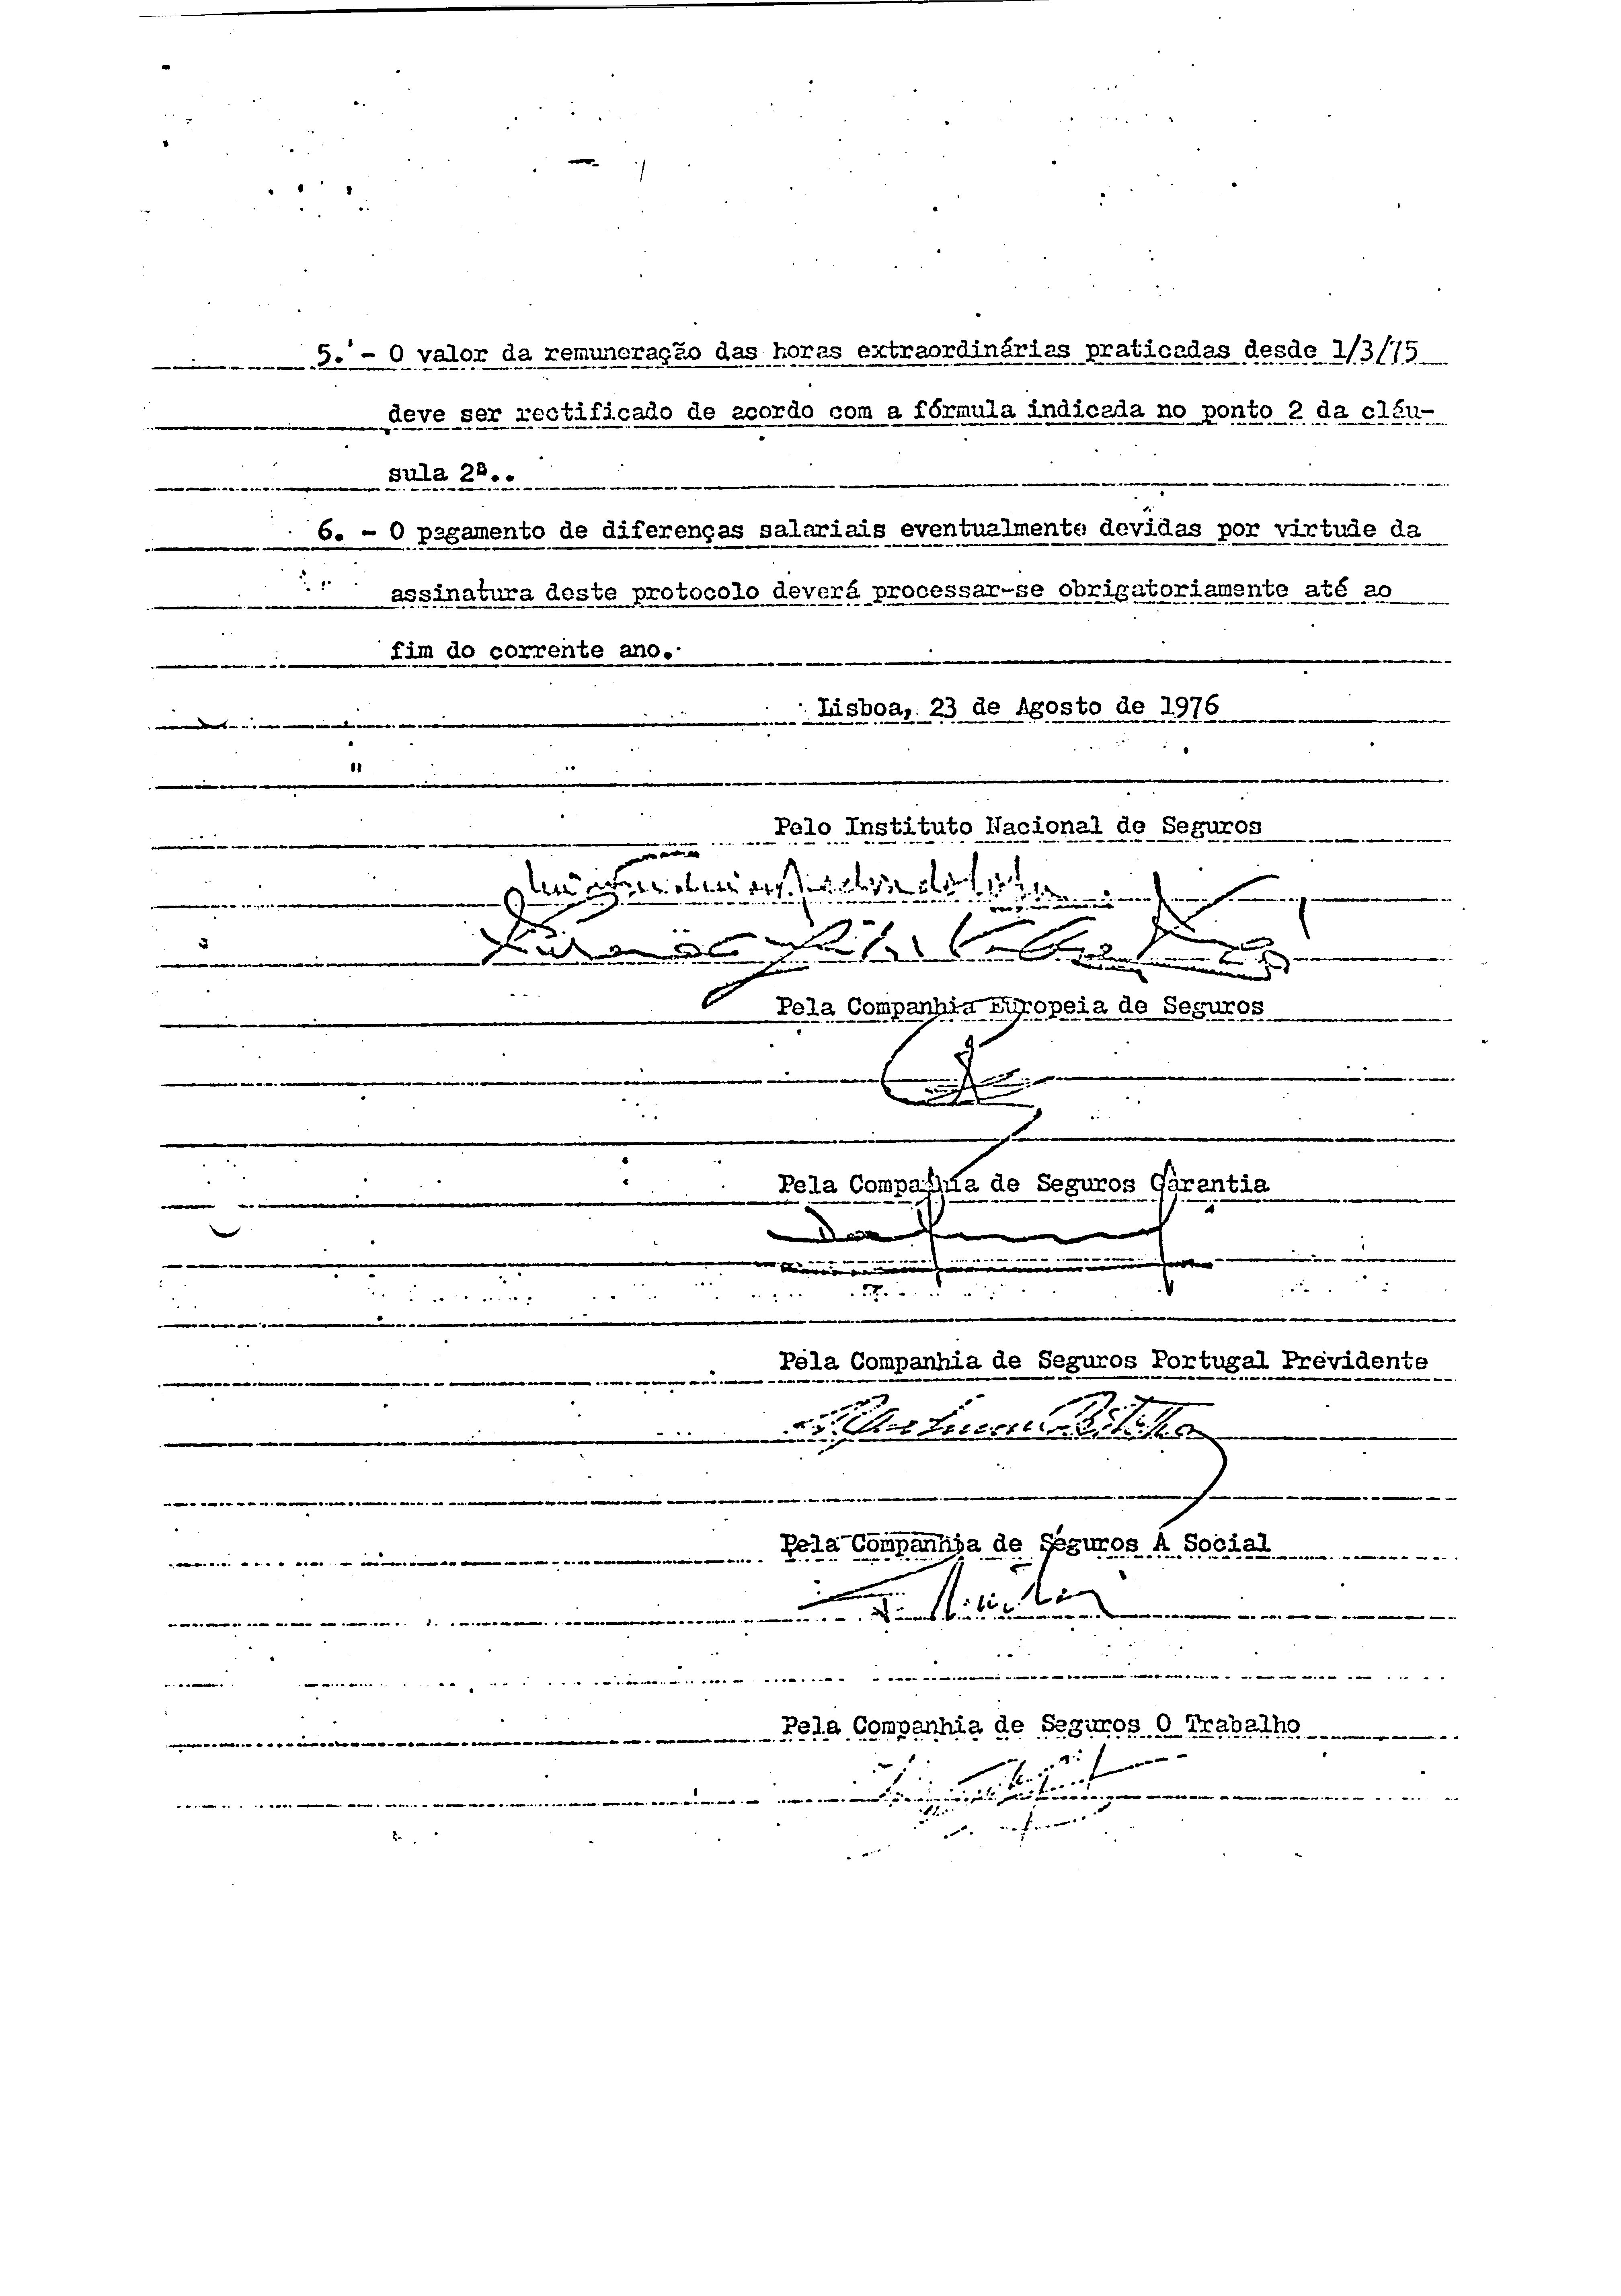 5. - O valor da remuneração das horas extraordinárias praticadas desde 1/3/75
deve ser rectificado de acordo com a fórmula indicada no ponto 2 da cláu-
sula 2ª..
6. - O pagamento de diferenças salariais eventualmente devidas por virtude da
assinatura deste protocolo deverá processar-se obrigatoriamente até ao
fim do corrente ano.
Lisboa, 23 de Agosto de 1976
Pelo Instituto Nacional de Seguros
Pela Companhia Europeia de Seguros
Pela Companhia de Seguros Garantia
Pela Companhia de Seguros Portugal Previdente
Pela Companhia de Seguros A Social
Pela Companhia de Seguros O Trabalho